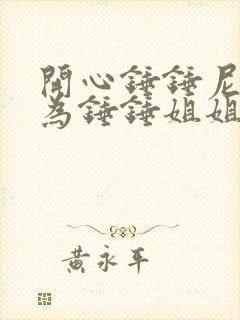 開心錘錘尼
為錘錘姐姐
黃永平